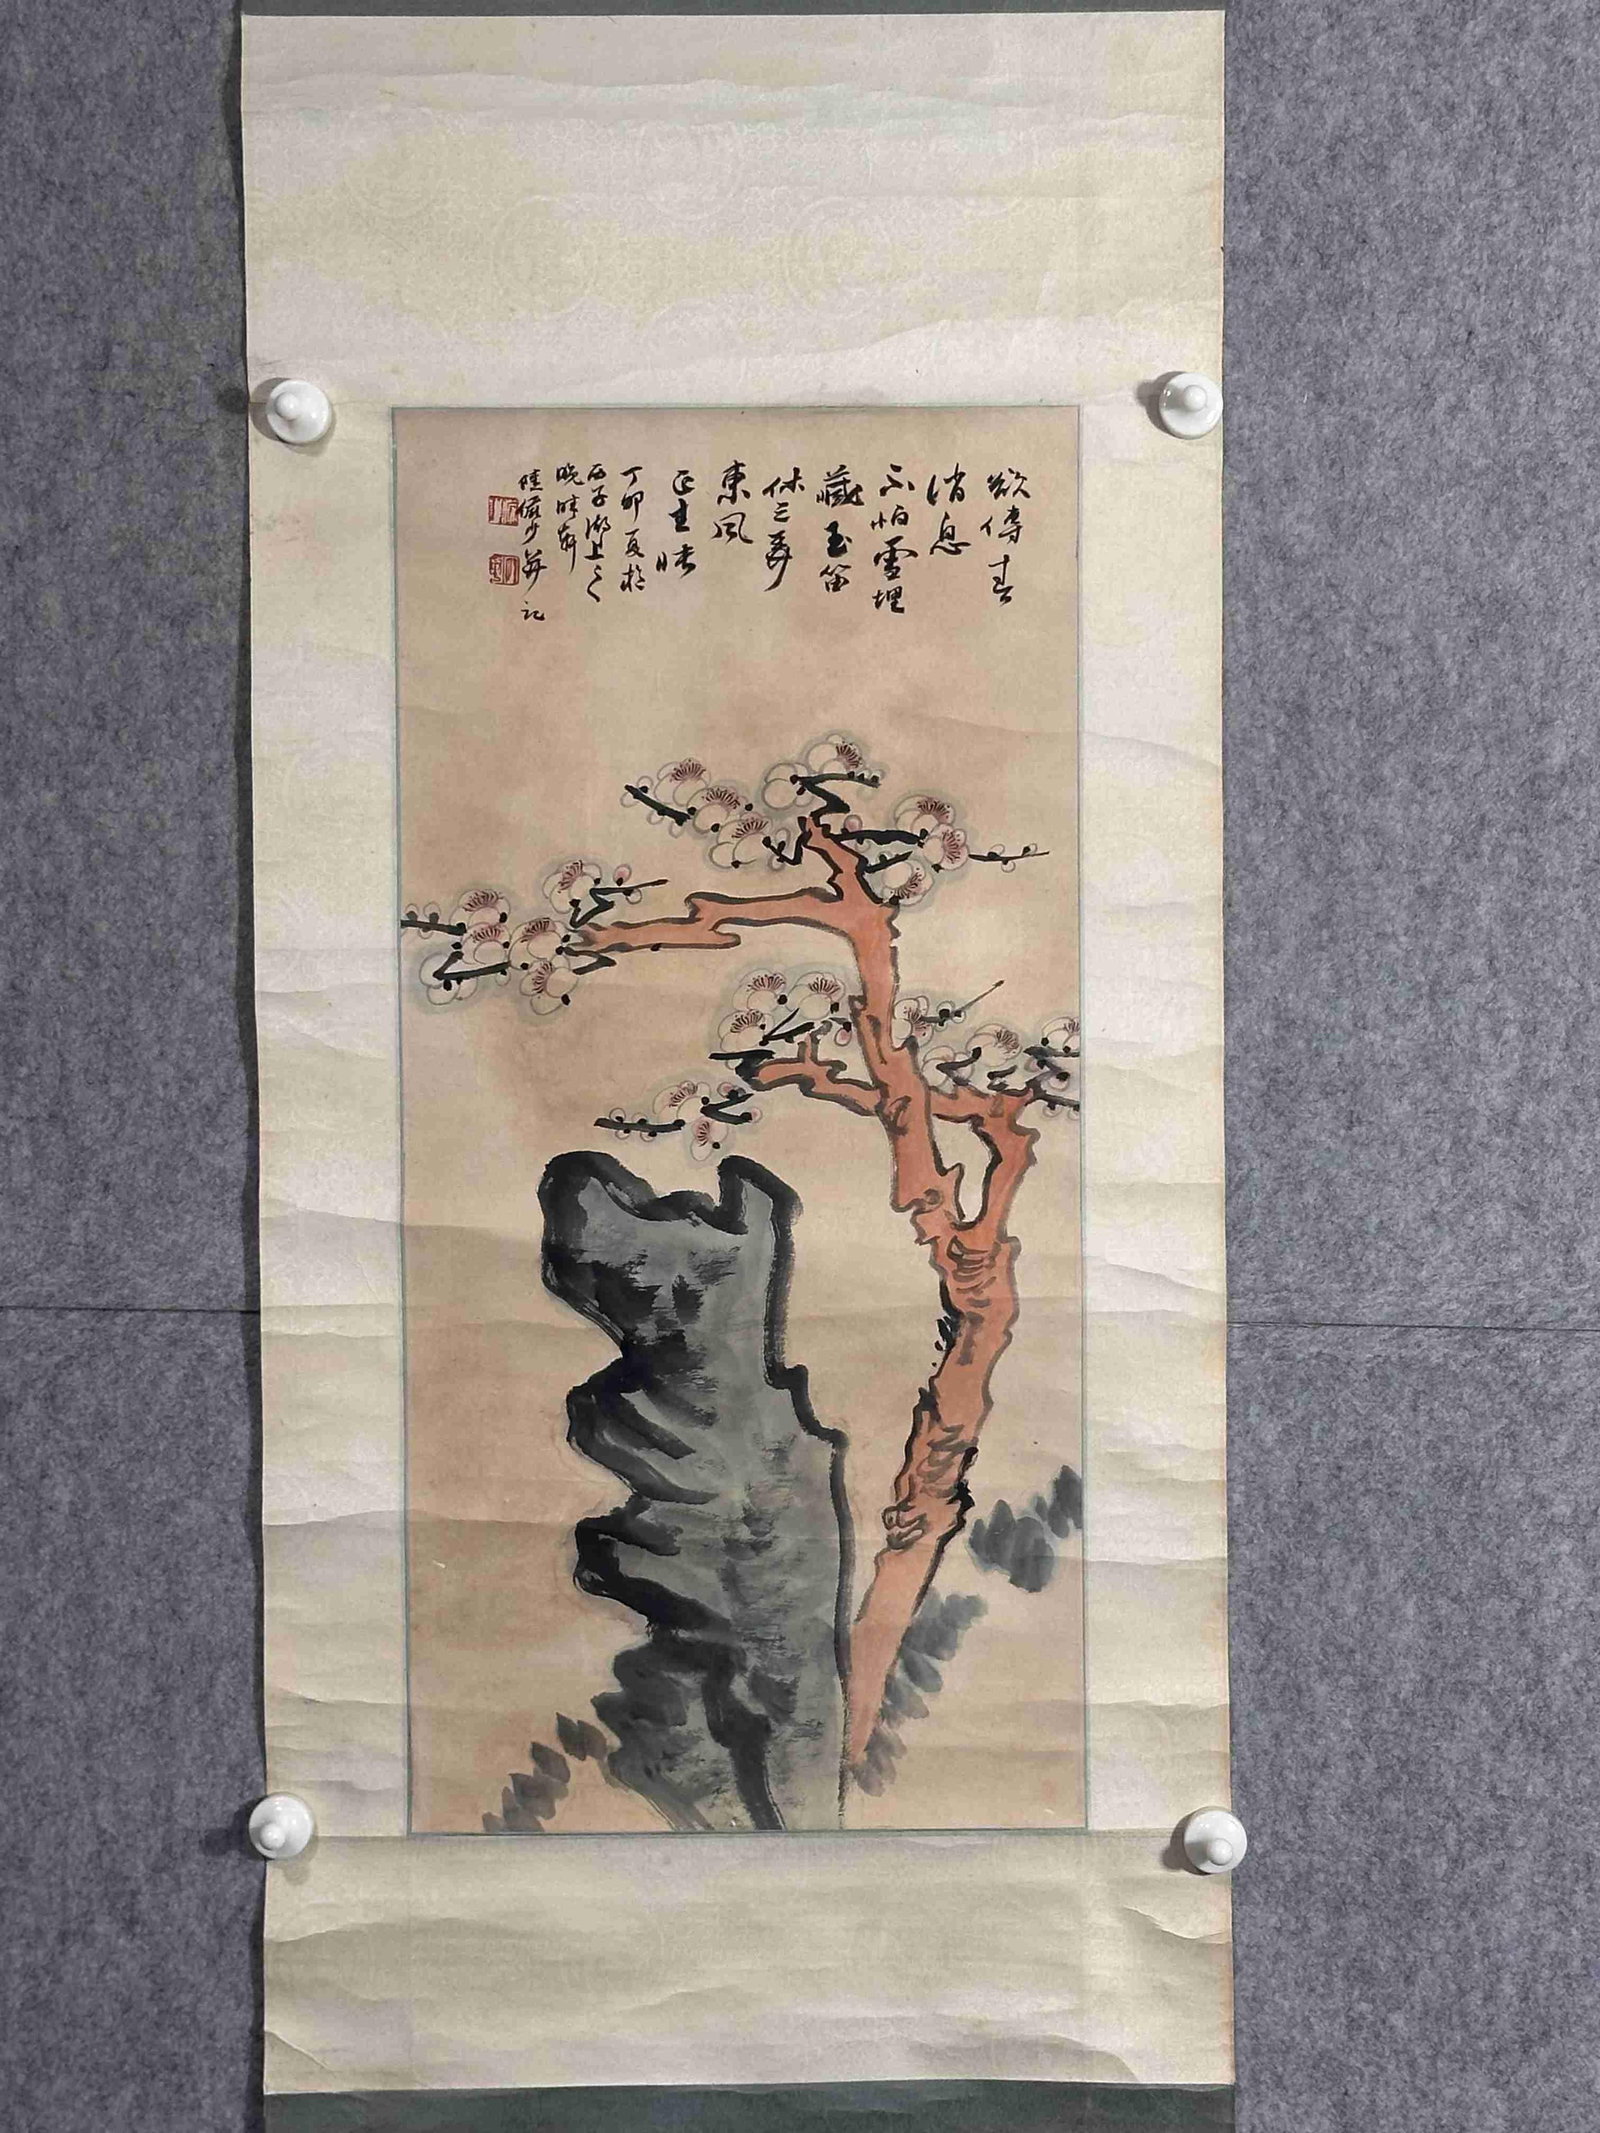 欲傳春
消息
不怕雪埋
藏玉笛
休三弄
東風
正主張
丁卯夏於
西子湖上之
晚晴軒
陸儼少並記